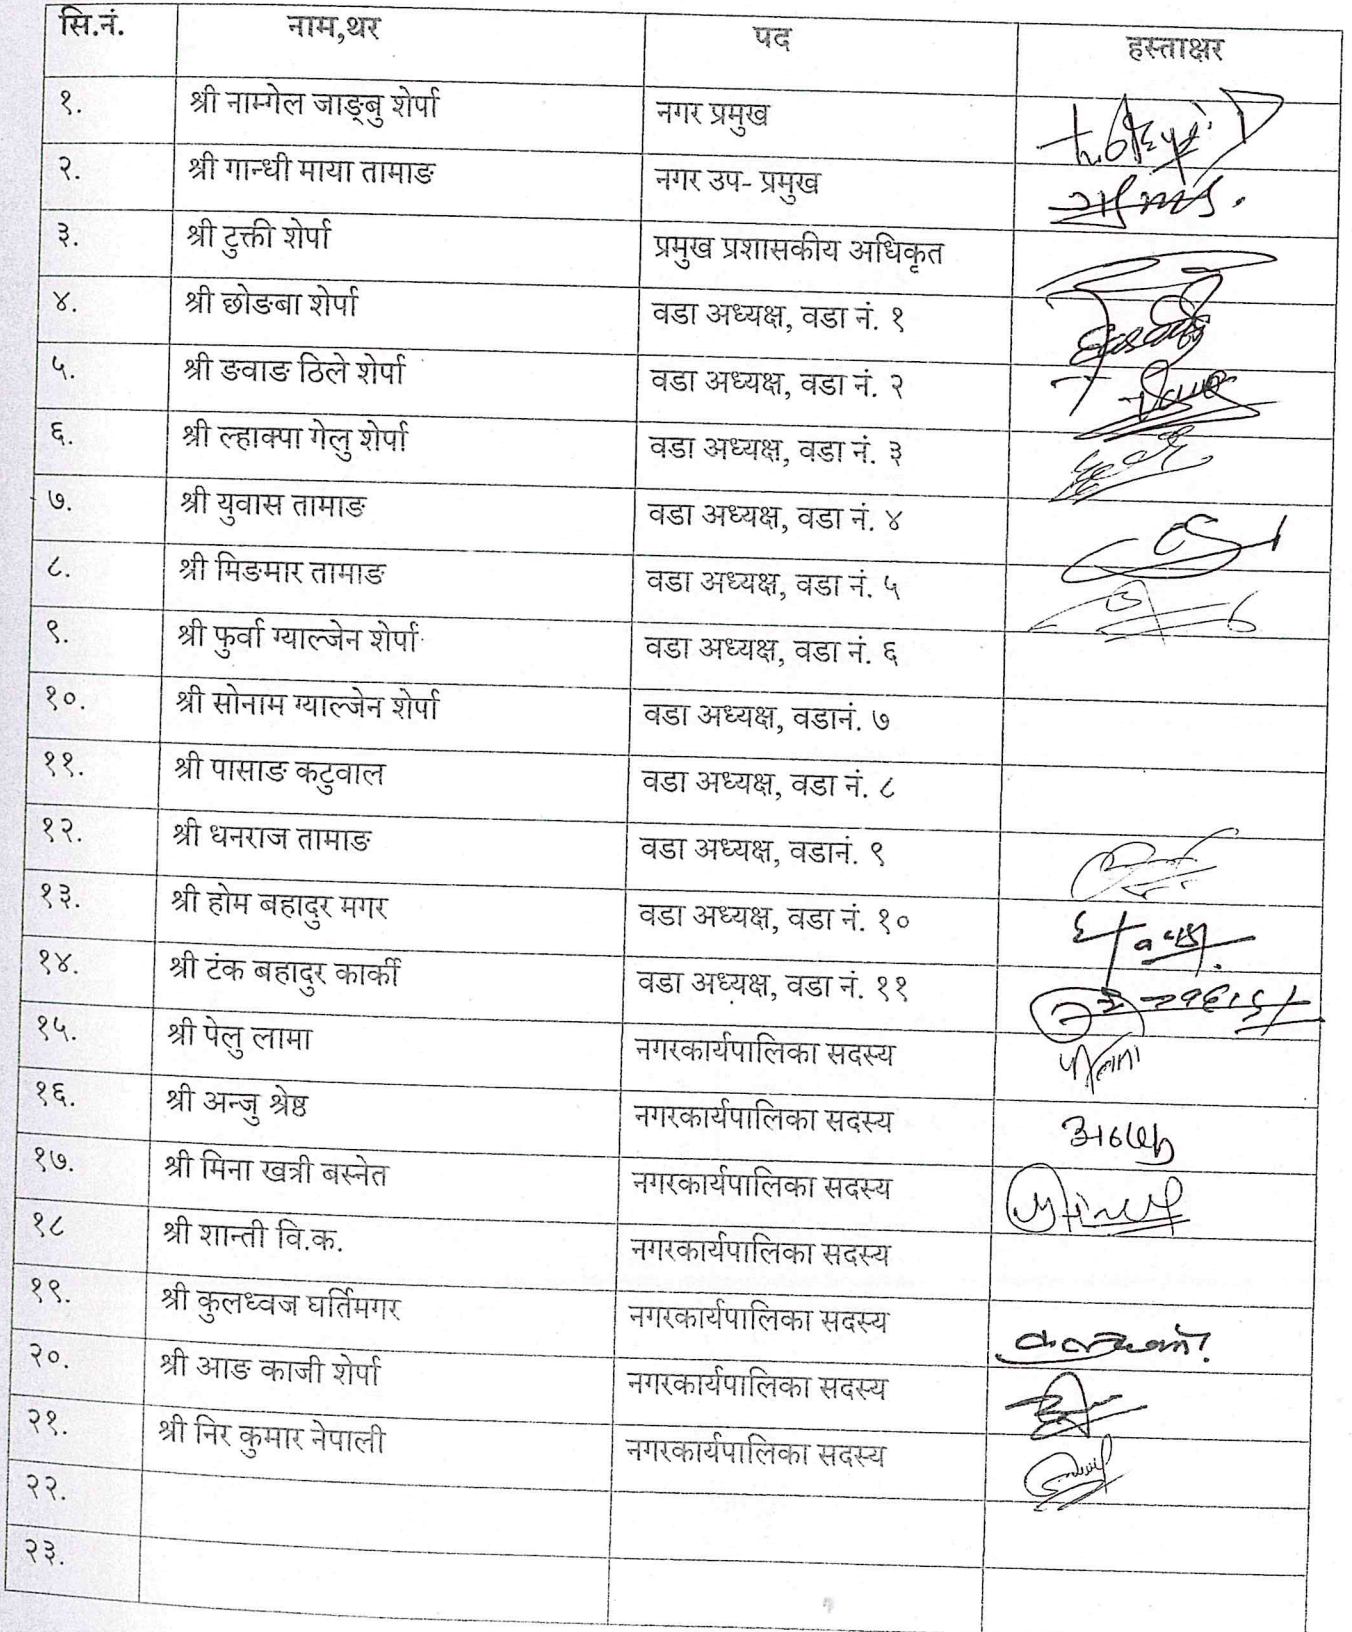 सि.नं. नाम,थर पद हस्ताक्षर
१. श्री नाम्गेल जाङ्बु शेर्पा नगर प्रमुख
२. श्री गान्धी माया तामाङ नगर उप- प्रमुख
३. श्री टुक्ती शेर्पा प्रमुख प्रशासकीय अधिकृत
४. श्री छोङबा शेर्पा वडा अध्यक्ष, वडा नं. १
५. श्री ङवाङ ठिले शेर्पा वडा अध्यक्ष, वडा नं. २
६. श्री ल्हाक्पा गेलु शेर्पा वडा अध्यक्ष, वडा नं. ३
७. श्री युवास तामाङ वडा अध्यक्ष, वडा नं. ४
८. श्री मिङमार तामाङ वडा अध्यक्ष, वडा नं. ५
९. श्री फुर्वा ग्याल्जेन शेर्पा वडा अध्यक्ष, वडा नं. ६
१०. श्री सोनाम ग्याल्जेन शेर्पा वडा अध्यक्ष, वडानं. ७
११. श्री पासाङ कटुवाल वडा अध्यक्ष, वडा नं. ८
१२. श्री धनराज तामाङ वडा अध्यक्ष, वडानं. ९
१३. श्री होम बहादुर मगर वडा अध्यक्ष, वडा नं. १०
१४. श्री टंक बहादुर कार्की वडा अध्यक्ष, वडा नं. ११
१५. श्री पेलु लामा नगरकार्यपालिका सदस्य
१६. श्री अन्जु श्रेष्ठ नगरकार्यपालिका सदस्य
१७. श्री मिना खत्री बस्नेत नगरकार्यपालिका सदस्य
१८ श्री शान्ती वि.क. नगरकार्यपालिका सदस्य
१९. श्री कुलध्वज घर्तिमगर नगरकार्यपालिका सदस्य
२०. श्री आङ काजी शेर्पा नगरकार्यपालिका सदस्य
२१. श्री निर कुमार नेपाली नगरकार्यपालिका सदस्य
२२.
२३.